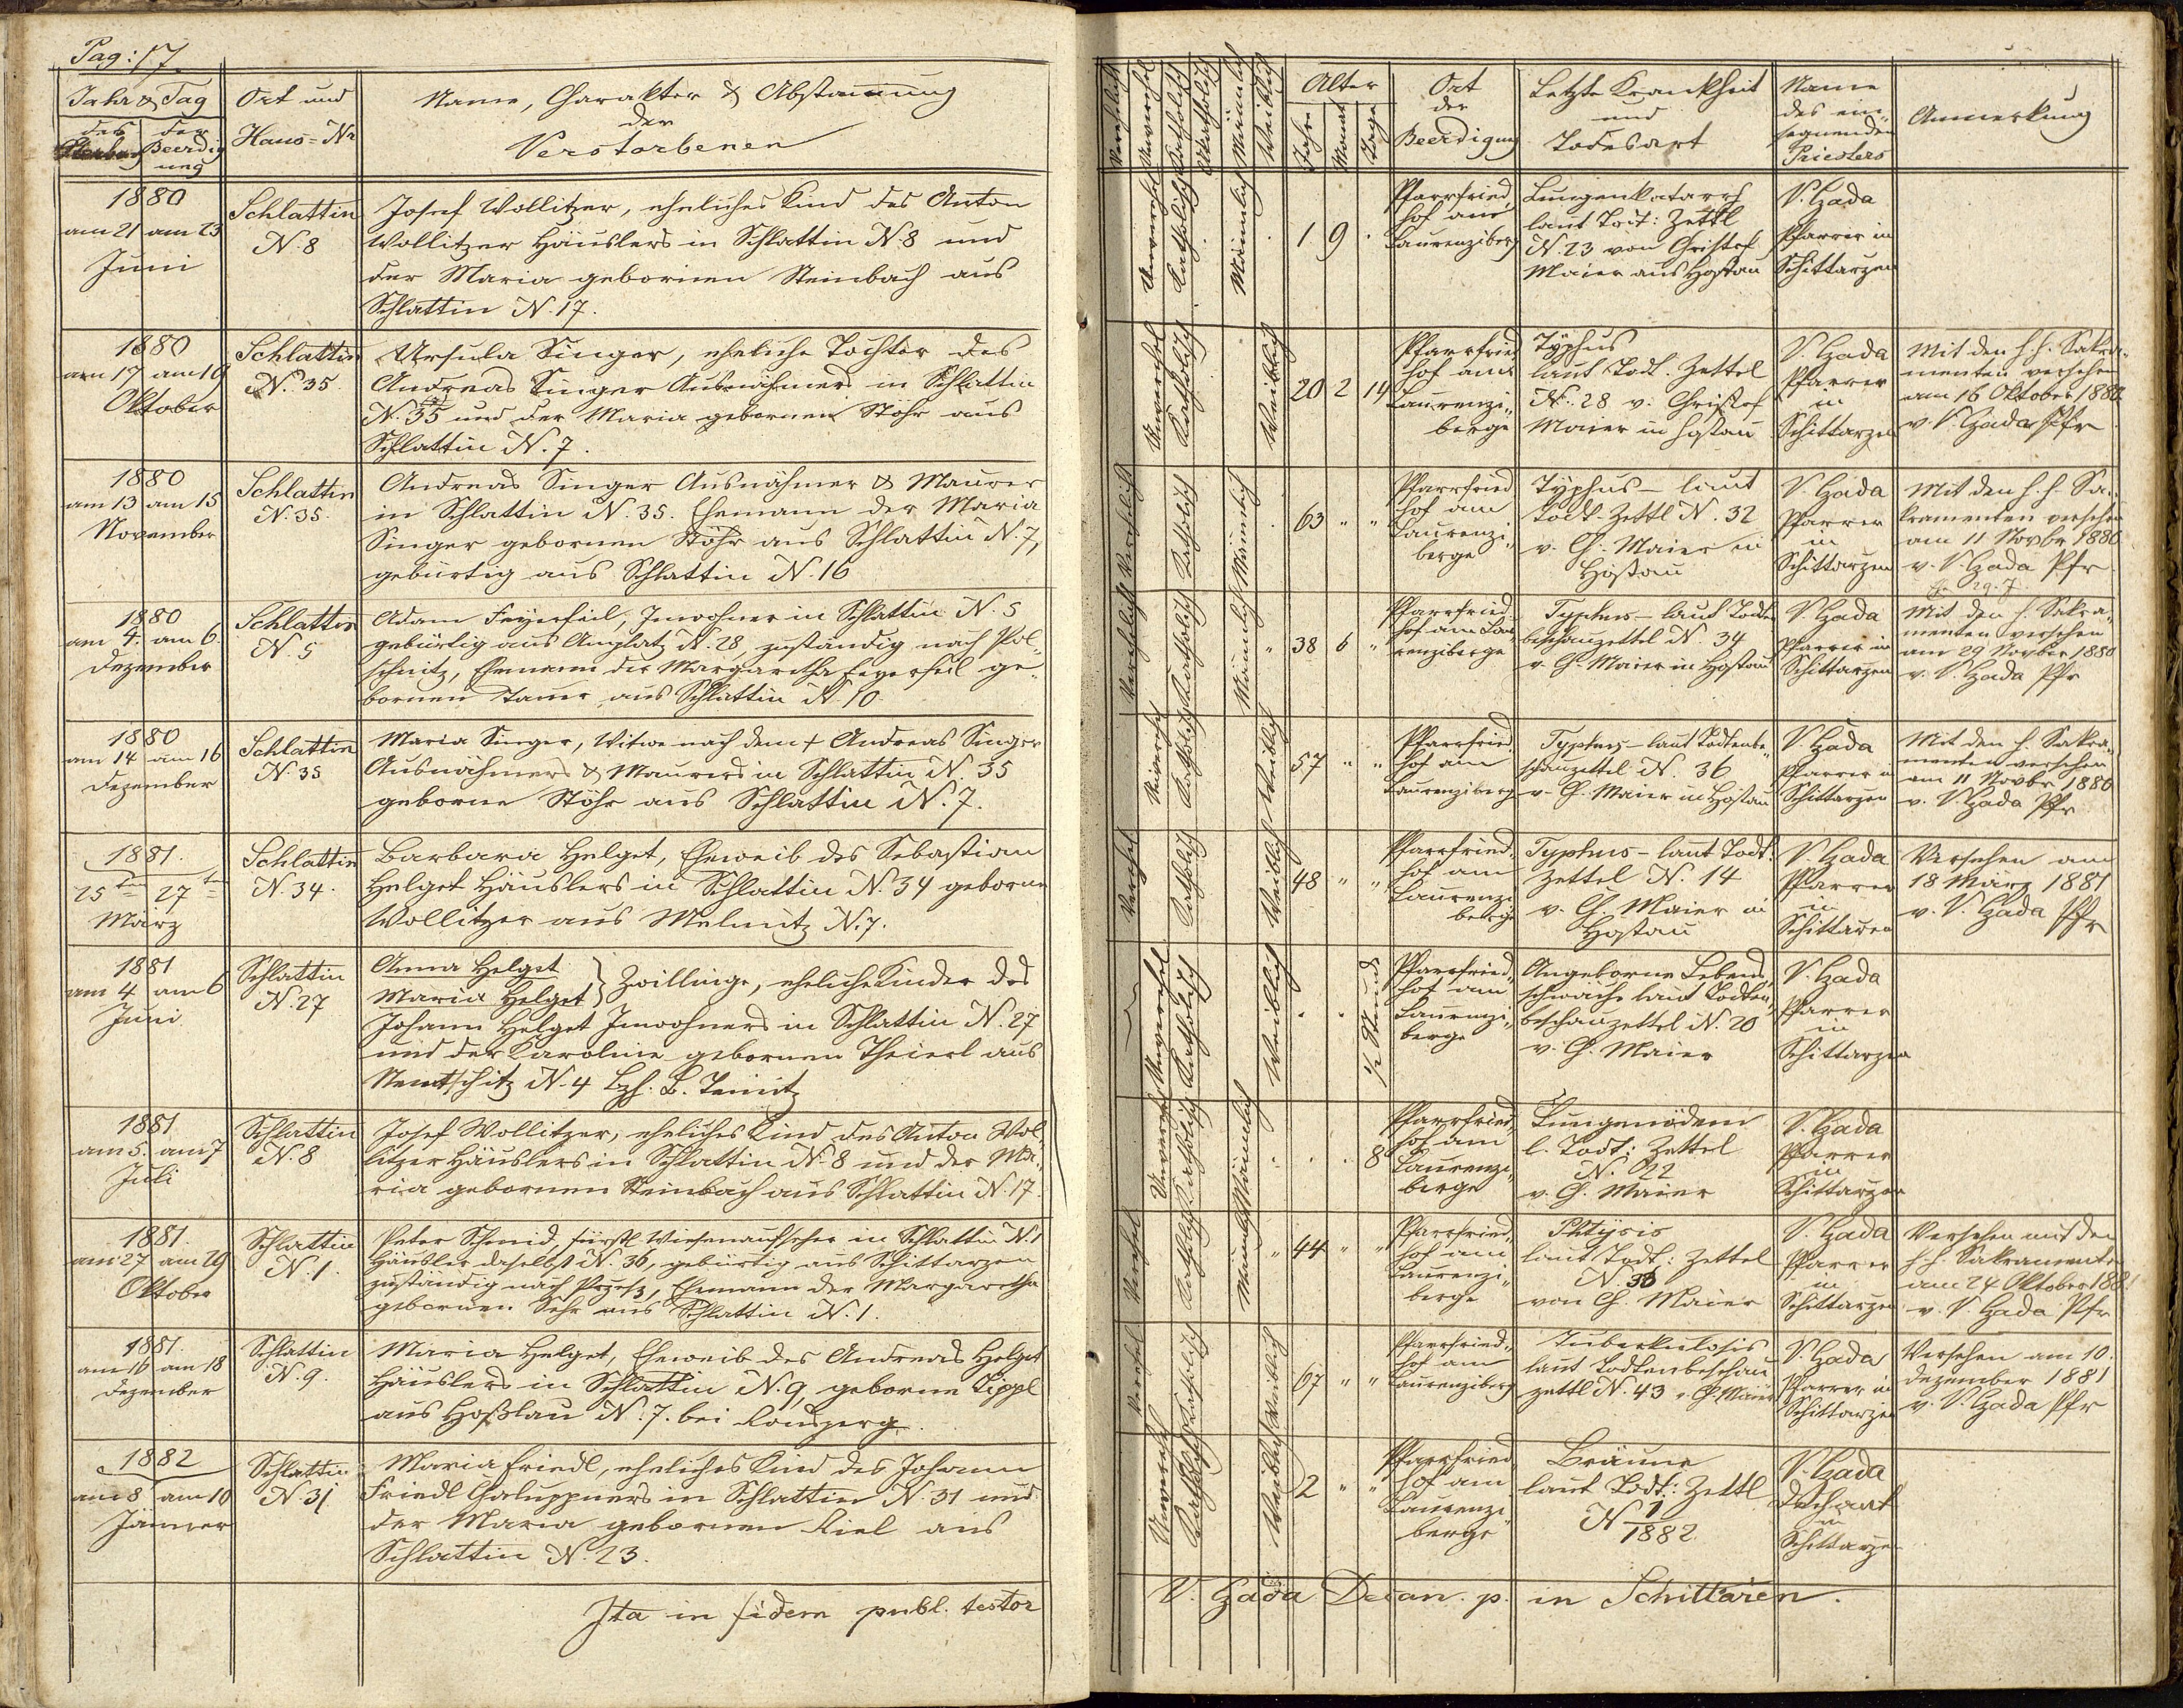 Pag: 17.
Jahr & Tag
des Sterbens
der Beerdigung
Ort und
Haus=Nr
Name, Charakter & Abstammung
der
Verstorbenen
1880
am 21 am 23
Juni
Schlattin
N. 8
Josef Wollitzer, eheliches Kind des Anton
Wollitzer Häuslers in Schlattin N. 8 und
der Maria gebornen Steinbach aus
Schlattin N. 17.
1880
am 17 am 19
Oktober
Schlattin
N. 35
Ursula Singer, eheliche Tochter des
Andreas Singer Ausnähmers in Schlattin
N. 35 und der Maria gebornen Stöhr aus
Schlattin N. 7.
1880
am 13 am 15
November
Schlattin
N. 35.
Andreas Singer Ausnähmer & Maurer
in Schlattin N. 35. Ehemann der Maria
Singer gebornen Stöhr aus Schlattin N. 7,
gebürtig aus Schlattin N. 16
1880
am 4. am 6
Dezember
Schlattin
N. 5
Adam Feyerfeil, Inwohner in Schlattin N. 5
gebürtig aus Amplatz N. 28, zuständig nach Pol„
schitz, Ehemann der Margaretha Feyerfeil ge„
bornen aus Schlattin N. 10
1880
am 14 am 16
Dezember
Schlattin
N. 35
Maria Singer, Witwe nach dem † Andreas Singer
Ausnähmers & Maurers in Schlattin N. 35
geborne Stöhr aus Schlattin N. 7.
1881.
25ten 27ten
März
Schlattin
N. 34.
Barbara Helget, Eheweib des Sebastian
Helget Häuslers in Schlattin N. 34 geborne
Wollitzer aus Melmitz N. 7.
1881
am 4 am 6
Juni
Schlattin
N. 27
Anna Helget
Maria Helget } Zwillinge, eheliche Kinder des
Johann Helget Inwohners in Schlattin N. 27
und der Karoline gebornen Theierl aus
Nemtschitz N. 4 Bzh. B. Teinitz
1881
am 5. am 7
Juli
Schlattin
N. 8
Josef Wollitzer, eheliches Kind des Anton Wol„
litzer Häuslers in Schlattin N. 8 und der Ma„
ria gebornen Steinbach aus Schlattin N. 17.
1881.
am 27 am 29
Oktober
Schlattin
N. 1.
Peter Schmid, fürstl. Wiesenaufseher in Schlattin N. 1
Häusler daselbst N. 36, gebürtig aus Schittarzen
zuständig nach Ehemann der Margaretha
gebornen aus Schlattin N. 1.
1881.
am 16 am 18
Dezember
Schlattin
N. 9.
Maria Helget, Eheweib des Andreas Helget
Häuslers in Schlattin N. 9, geborne Tippl
aus Hoßlau N. 7. bei Ronsperg.
1882
am 8 am 10
Jänner
Schlattin
N. 31
Maria Friedl, eheliches Kind des Johann
Friedl Chaluppners in Schlattin N. 31 und
der Maria gebornen Kiel aus
Schlattin N. 23.
Ita in fidem publ. testor
Verehlicht
Unverehel
Katholisch
Akatholisch
Männlich
Weiblich
Alter
Jahre
Monat
Tage
Ort
der
Beerdigung
Letzte Krankheit
und
Todesart
Name
des ein„
segnenden
Priesters
Anmerkung
Unverehel Katholisch Männlich
1 9
Pfarrfried„
hof am
Laurenziberg
Lungenkatarrh
laut Todt: Zettl
N. 23 von Christof
Maier aus Hostau
V. Hada
Pfarrer in
Schittarzen
Unverehel Katholisch Weiblich
20 2 14
Pfarrfried
hof am
Laurenzi„
berge
Typhus
laut Todt. Zettel
N. 28 v. Christof
Maier in Hostau
V. Hada
Pfarrer
in
Schittarzen
Mit den h. h. Sakra„
menten versehen
am 16 Oktober 1880.
v. V. Hada Pfr
Verehlicht Katholisch Männlich
63 „ „
Pfarrfried
hof am
Laurenzi„
berge
Typhus – laut
Todt. Zettl N. 32
v. Ch. Maier in
Hostau
V. Hada
Pfarrer
in
Schittarzen
Mit den h. h. Sa„
kramenten versehen
am 11 Novbr 1880
v. V. Hada Pfr
Verehelicht Katholisch Männlich
38 6 „
Pfarrfried„
hof am Lau„
renziberge
Typhus – laut Todten
beschauzettel N. 34
v. Ch. Maier in Hostau
V. Hada
Pfarrer in
Schittarzen
Mit den h. Sakra„
menten versehen
am 29 Novber 1880
v. V. Hada Pfr
Katholisch Weiblich
57 „ „
Pfarrfried„
hof am
Laurenziberg
Typhus – laut Todtenbe„
schauzettel N. 36
v. Ch. Maier in Hostau
V. Hada
Pfarrer in
Schittarzen
Mit den h. Sakra„
menten versehen
am 11 Novbr 1880
v. V. Hada Pfr
Verehel Katholisch Weiblich
48 „ „
Pfarrfried„
hof am
Laurenzi
berge
Typhus – laut Todt:
Zettel N. 14
v. Ch. Maier in
Hostau
V. Hada
Pfarrer
in
Schittaren
Versehen am
18 März 1881
v. V. Hada Pfr
Unverehel Katholisch Weiblich
1/2 Stunde
Pfarrfried„
hof am
Laurenzi„
berge
Angeborne Lebens„
schwäche laut Todten„
beschauzettel N. 20
v. Ch. Maier
V. Hada
Pfarrer
in
Schittarzen
Unverehel Katholisch Männlich
8
Pfarrfried„
hof am
Laurenzi„
berge
Lungenödem
l. Todt: Zettel
N. 22
v. Ch. Maier
V. Hada
Pfarrer
in
Schittarzen
Verehel Katholisch Männlich
44 „ „
Pfarrfried„
hof am
Laurenzi„
berge
Phtysis
laut Todt: Zettel
N. 38
von Ch. Maier
V. Hada
Pfarrer
in
Schittarzen
Versehen mit den
h. h. Sakramenten
am 24 Oktober 1881
v. V. Hada Pfr
Verehel Katholisch Weiblich
67 „ „
Pfarrfried„
hof am
Laurenziberg
Tuberkulosis
laut Todtenbeschau
zettl N. 43 v. Ch. Maier
V. Hada
Pfarrer in
Schittarzen
Versehen am 10.
Dezember 1881
v. V. Hada Pfr
Unverehel Katholisch Weiblich
2 „ „
Pfarrfried„
hof am
Laurenzi
berge
Bräune
laut Todt: Zettl
N 1/1882.
V. Hada
Dechant
in
Schittarzen
V. Hada Decan. p. in Schittaren.